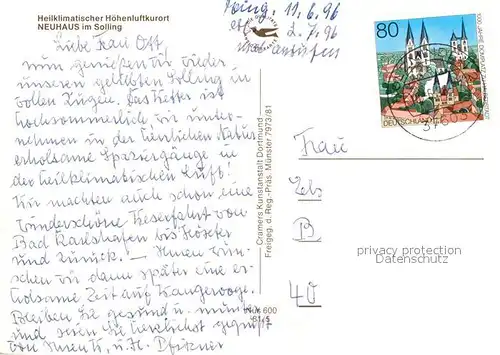 Heilklimatischer Höhenluftkurort
NEUHAUS im Solling
Liebe Frau Ott,
nun genießen wir wieder
unseren geliebten Solling in
vollen Zügen. Das Wetter ist
hochsommerlich wir unter-
nehmen in der herrlichen Natur
erholsame Spaziergänge in
der heilklimatischen Luft!
Wir machten auch schon eine
wunderschöne Weserfahrt von
Bad Karlshafen bis Höxter
und zurück. — Ihnen wün-
schen wir dann später eine er-
holsame Zeit auf Wangerooge.
Bleiben Sie gesund u. munter
und seien Sie herzlichst gegrüßt
von Ihren K. u. H. Pfitzner
Cramers Kunstanstalt Dortmund
Freigeg. d. Reg.-Präs. Münster 7973/81
Nu 600
81/5
19.6.96
2.7.96
80
DEUTSCHLAND
Frau
B
40
privacy protection
Datenschutz